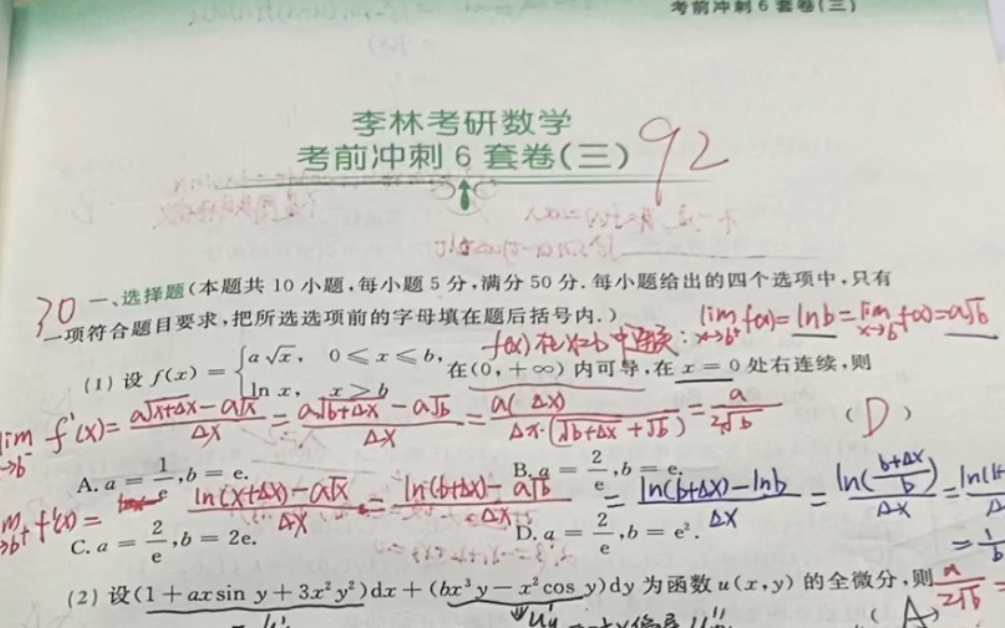 考前冲刺6套卷(三)
李林考研数学
考前冲刺6套卷(三) 92
30 一、选择题(本题共 10 小题,每小题 5 分,满分 50 分. 每小题给出的四个选项中,只有
一项符合题目要求,把所选选项前的字母填在题后括号内.)
f(x)在x=b中连续: lim x→b⁺ f(x)= lnb = lim x→b⁻ f(x)=a√b
(1) 设 f(x) = { a√x, 0 ≤ x ≤ b, ln x, x > b 在(0,+∞)内可导,在 x = 0 处右连续,则
lim →b⁻ f'(x)= (a√(x+Δx) − a√x)/Δx = (a√(b+Δx) − a√b)/Δx = a(Δx)/(Δx·(√(b+Δx)+√b)) = a/(2√b) ( D )
A. a = 1/e, b = e. B. a = 2/e, b = e.
→b⁺ f'(x) = (ln(x+Δx) − a√x)/Δx = (ln(b+Δx) − a√b)/Δx = (ln(b+Δx) − lnb)/Δx = ln((b+Δx)/b)/Δx =
C. a = 2/e, b = 2e. D. a = 2/e, b = e².
= 1/b
(2) 设(1 + ax sin y + 3x²y²)dx + (bx³y − x² cos y)dy 为函数 u(x,y) 的全微分,则
a/(2√b) =
( A )